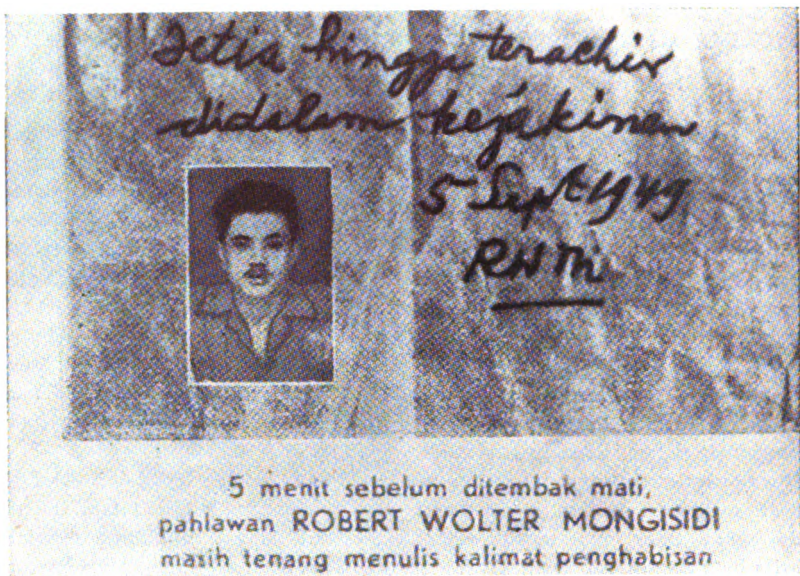 Setia hingga terachir
didalam kejakinan
5 Sept 1949
RWM
5 menit sebelum ditembak mati,
pahlawan ROBERT WOLTER MONGISIDI
masih tenang menulis kalimat penghabisan